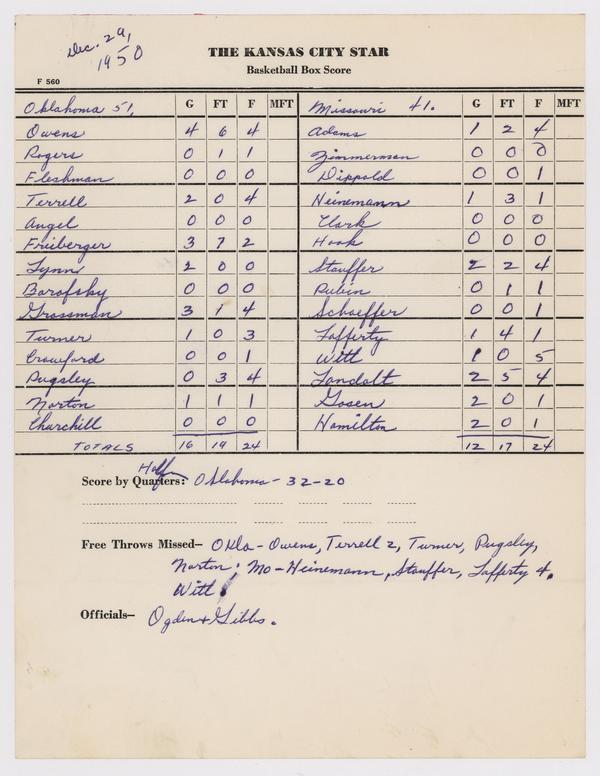 Dec. 29,
1950
THE KANSAS CITY STAR
Basketball Box Score
F 560
Oklahoma 51, G FT F MFT Missouri 41. G FT F MFT
Owens 4 6 4 Adams 1 2 4
Rogers 0 1 1 Zimmerman 0 0 0
Fleshman 0 0 0 Dippold 0 0 1
Terrell 2 0 4 Heinemann 1 3 1
Angel 0 0 0 Clark 0 0 0
Frieberger 3 7 2 Hook 0 0 0
Lynn 2 0 0 Stauffer 2 2 4
Borofsky 0 0 0 Rubin 0 1 1
Grossman 3 1 4 Schoeffer 0 0 1
Turner 1 0 3 Lafferty 1 4 1
Crawford 0 0 1 Witt 1 0 5
Pugsley 0 3 4 Landolt 2 5 4
Norton 1 1 1 Gosen 2 0 1
Churchill 0 0 0 Hamilton 2 0 1
TOTALS 16 19 24 12 17 24
Half
Score by Quarters: Oklahoma - 32-20
Free Throws Missed— Okla - Owens, Terrell 2, Turner, Pugsley,
Norton; Mo - Heinemann, Stauffer, Lafferty 4,
Witt
Officials— Ogden & Gibbs.